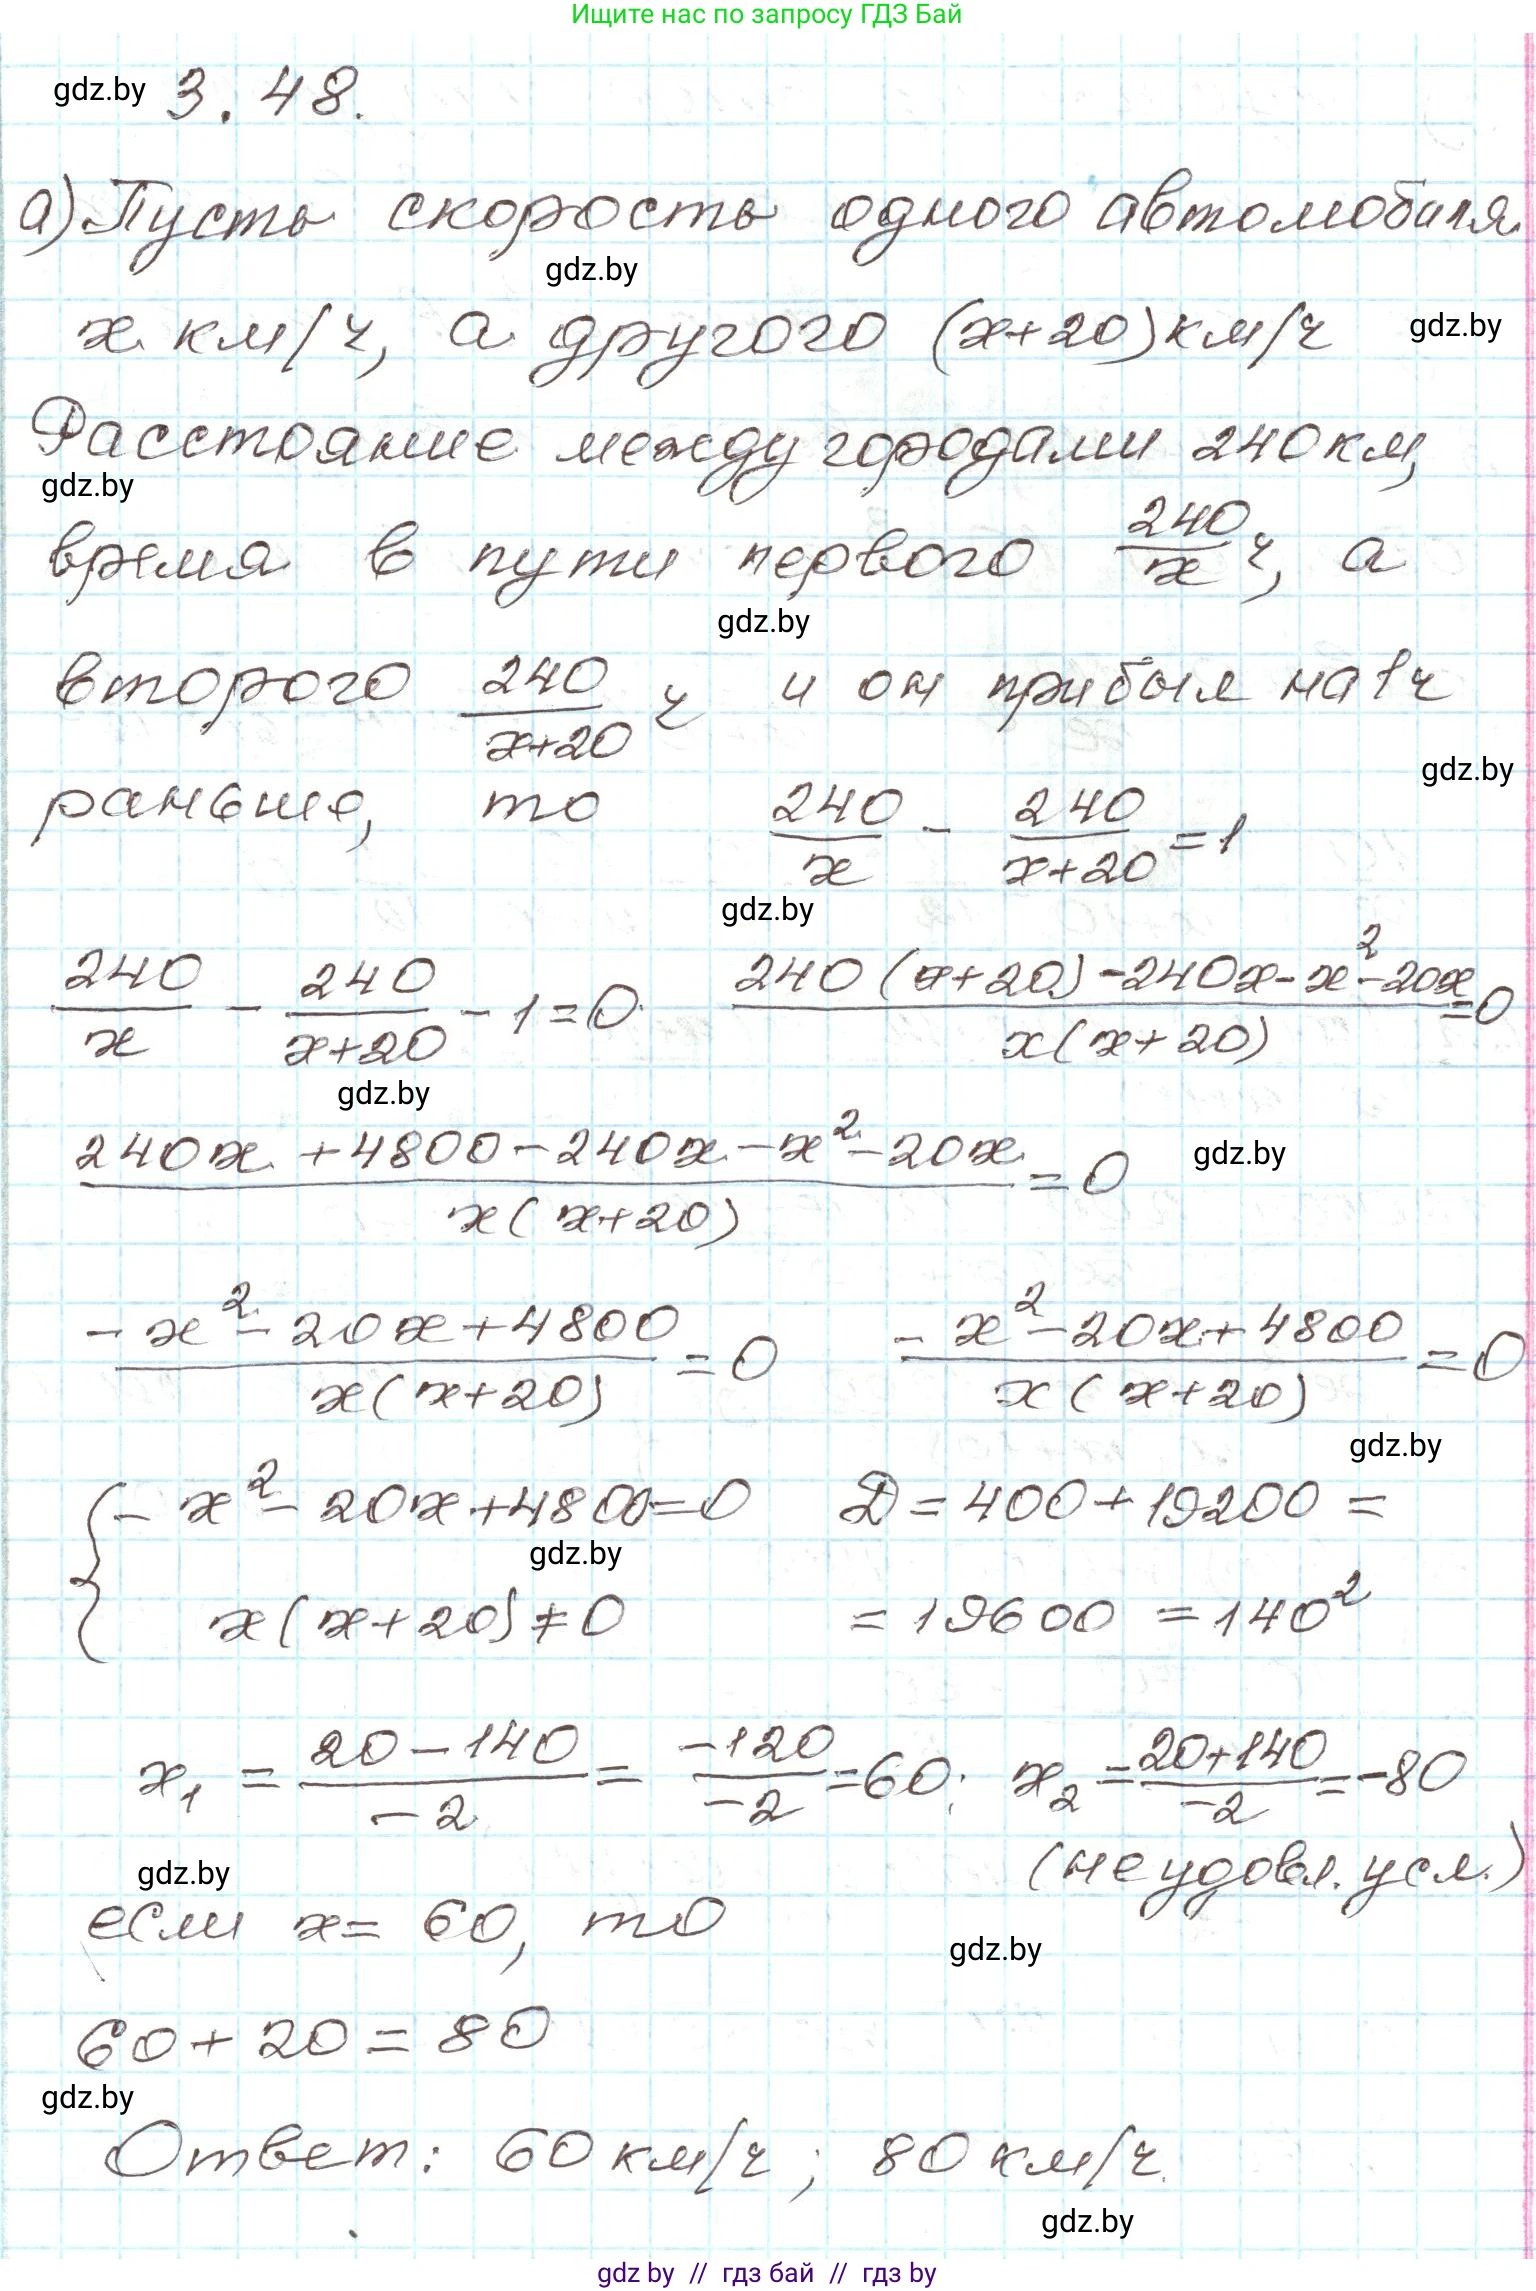 Ищите нас по запросу ГДЗ Бай
gdz.by 3.48.
а) Пусть скорость одного автомобиля
gdz.by
x км/ч, а другого (x+20) км/ч gdz.by
Расстояние между городами 240 км,
gdz.by
время в пути первого 240/x ч, а
gdz.by
второго 240/(x+20) ч и он прибыл на 1 ч
gdz.by
раньше, то 240/x - 240/(x+20) = 1
gdz.by
240/x - 240/(x+20) - 1 = 0 (240(x+20) - 240x - x² - 20x)/(x(x+20)) = 0
gdz.by
(240x + 4800 - 240x - x² - 20x)/(x(x+20)) = 0 gdz.by
(-x² - 20x + 4800)/(x(x+20)) = 0 (-x² - 20x + 4800)/(x(x+20)) = 0
gdz.by
{ -x² - 20x + 4800 = 0 D = 400 + 19200 =
gdz.by
x(x+20) ≠ 0 = 19600 = 140²
x₁ = (20 - 140)/(-2) = (-120)/(-2) = 60; x₂ = (20+140)/(-2) = -80
gdz.by (не удовл. усл.)
если x = 60, то
gdz.by
60 + 20 = 80
gdz.by
Ответ: 60 км/ч; 80 км/ч.
gdz.by
gdz by // гдз бай // гдз by